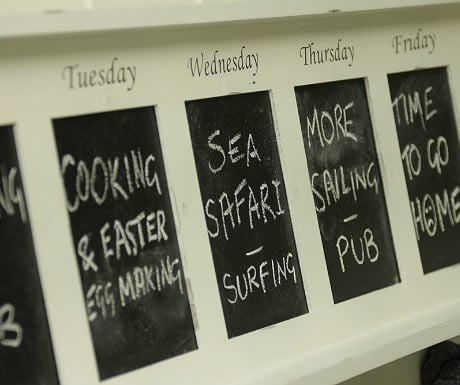 Tuesday
COOKING
& EASTER
EGG MAKING
Wednesday
SEA
SAFARI
–
SURFING
Thursday
MORE
SAILING
–
PUB
Friday
TIME
TO GO
HOME